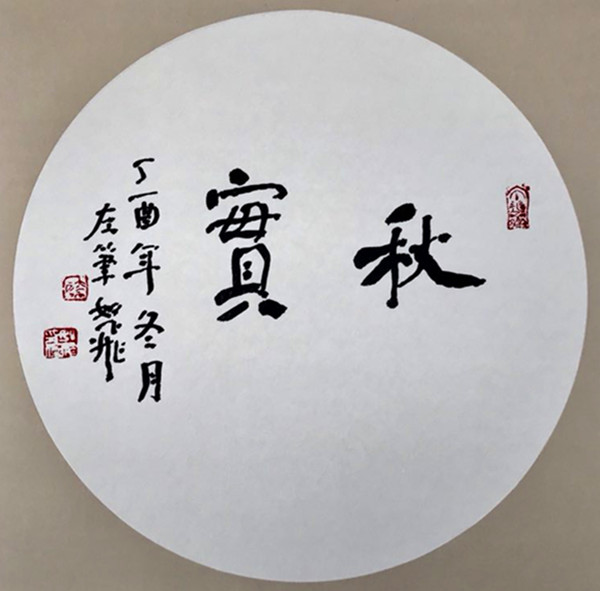 秋實
丁酉年冬月
左筆